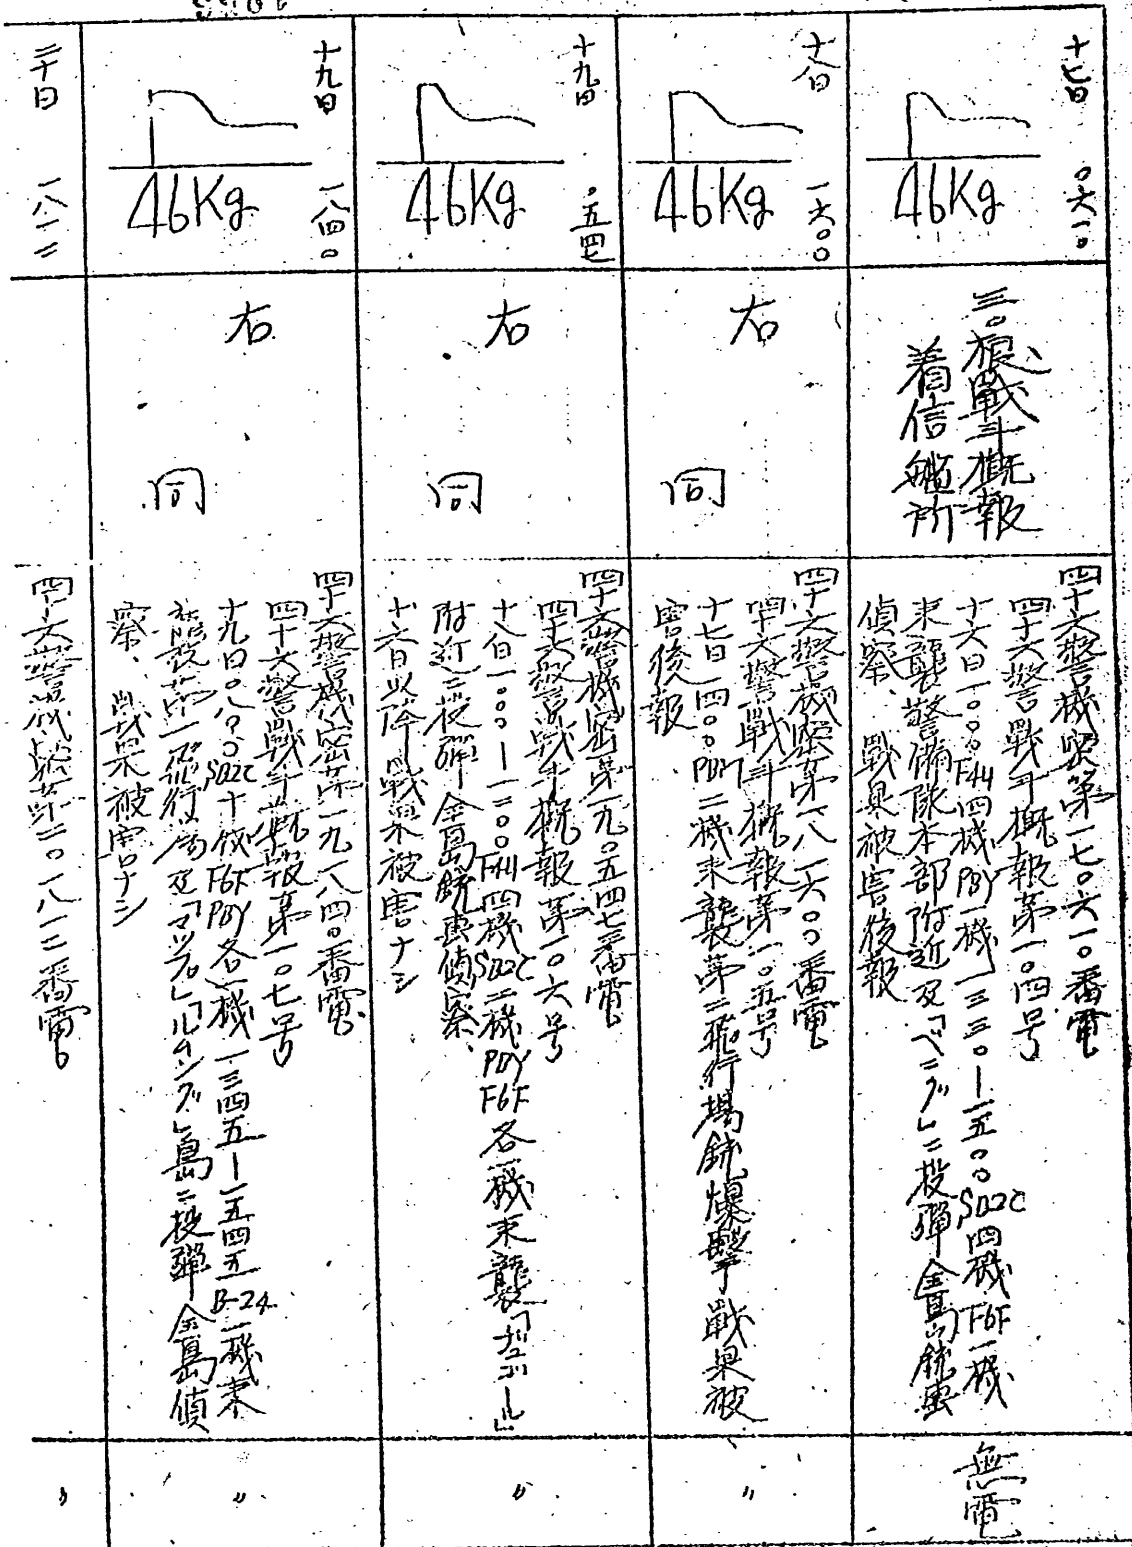 十七日 〇六一〇
46Kg
三〇根戰斗概報
着信艦所
四十六警機密第一七〇六一〇番電
四十六警戰斗概報第一〇四号
十六日一〇〇〇F4U四機PBY一機一三三〇ー一五〇〇SB2C四機F6F一機
来襲警備隊本部附近及「ベニグ」ニ投彈全島銃撃
偵察、戰果被害後報
無電
十八日 一六〇〇
46Kg
右 同
四十六警機密第一八一六〇〇番電
四十六警戰斗概報第一〇五号
十七日一四〇〇PBM二機来襲第二飛行場銃爆撃戰果被
害後報
〃
十九日 〇五四七
46Kg
右 同
四十六警機密第一九〇五四七番電
四十六警戰斗概報第一〇六号
十八日一〇〇〇ー一二〇〇F4U四機SB2C二機PBY F6F各一機来襲
附近ニ投彈全島銃撃偵察、
十六日以降戰果被害ナシ
〃
十九日 一八四〇
46Kg
右 同
四十六警機密第一九一八四〇番電
四十六警戰斗概報第一〇七号
十九日〇八〇〇SB2C十機F6F PBY各一機一三四五ー一五四五B-24一機来
襲第一飛行場及「マツプ」「ルムング」島ニ投彈全島偵
察、戰果被害ナシ
〃
二十日 一八一二
四十六警機密第二〇一八一二番電
〃